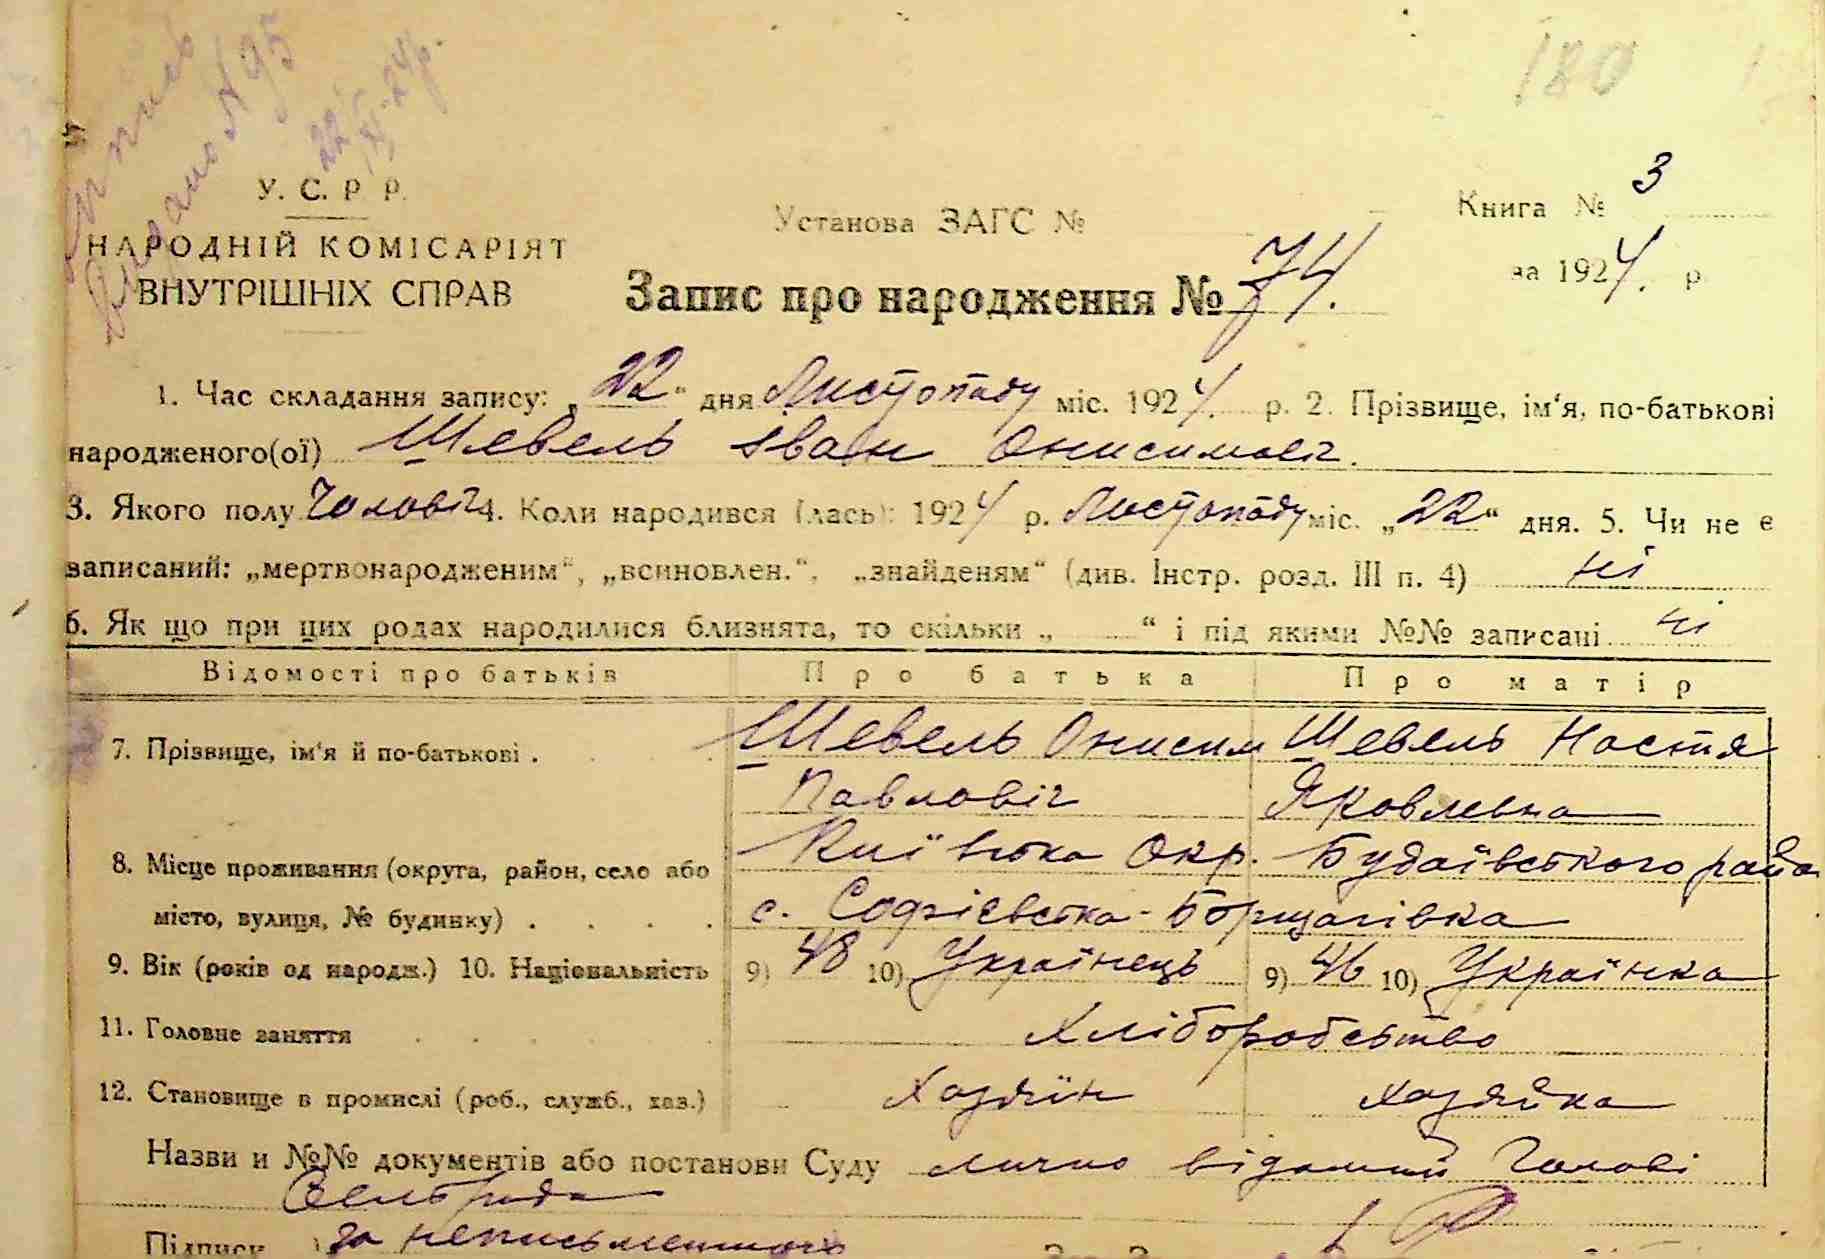 180
Випись
Видано № 95
22/XI-24р.
У. С. Р. Р.
НАРОДНІЙ КОМІСАРІЯТ
ВНУТРІШНІХ СПРАВ
Установа ЗАГС №
Книга № 3
за 1924. р.
Запис про народження № 74.
1. Час складання запису: „22“ дня Листопаду міс. 1924. р. 2. Прізвище, ім‘я, по-батькові
народженого(ої) Шевель Іван Онисимовіч.
3. Якого полу Чоловіч 4. Коли народився (лась): 1924 р. Листопаду міс. „22“ дня. 5. Чи не є
записаний: „мертвонародженим“, „всиновлен.“, „знайденям“ (див. Інстр. розд. III п. 4) ні
6. Як що при цих родах народилися близнята, то скільки „ “ і під якими №№ записані ні
Відомості про батьків Про батька Про матір
7. Прізвище, ім‘я й по-батькові . Шевель Онисим Шевель Настя
Павловіч Яковлевна
8. Місце проживання (округа, район, село або Київська Окр. Будаївського района
місто, вулиця, № будинку) . . . . с. Софієвська-Борщагівка
9. Вік (років од народж.) 10. Національність 9) 48 10) Українець 9) 46 10) Українка
11. Головне заняття . . . . . Хліборобство
12. Становище в промислі (роб., служб., хаз.) Хазяїн хазяйка
Назви и №№ документів або постанови Суду лично відомий Голові
Сельради
Підписи за неписьменного